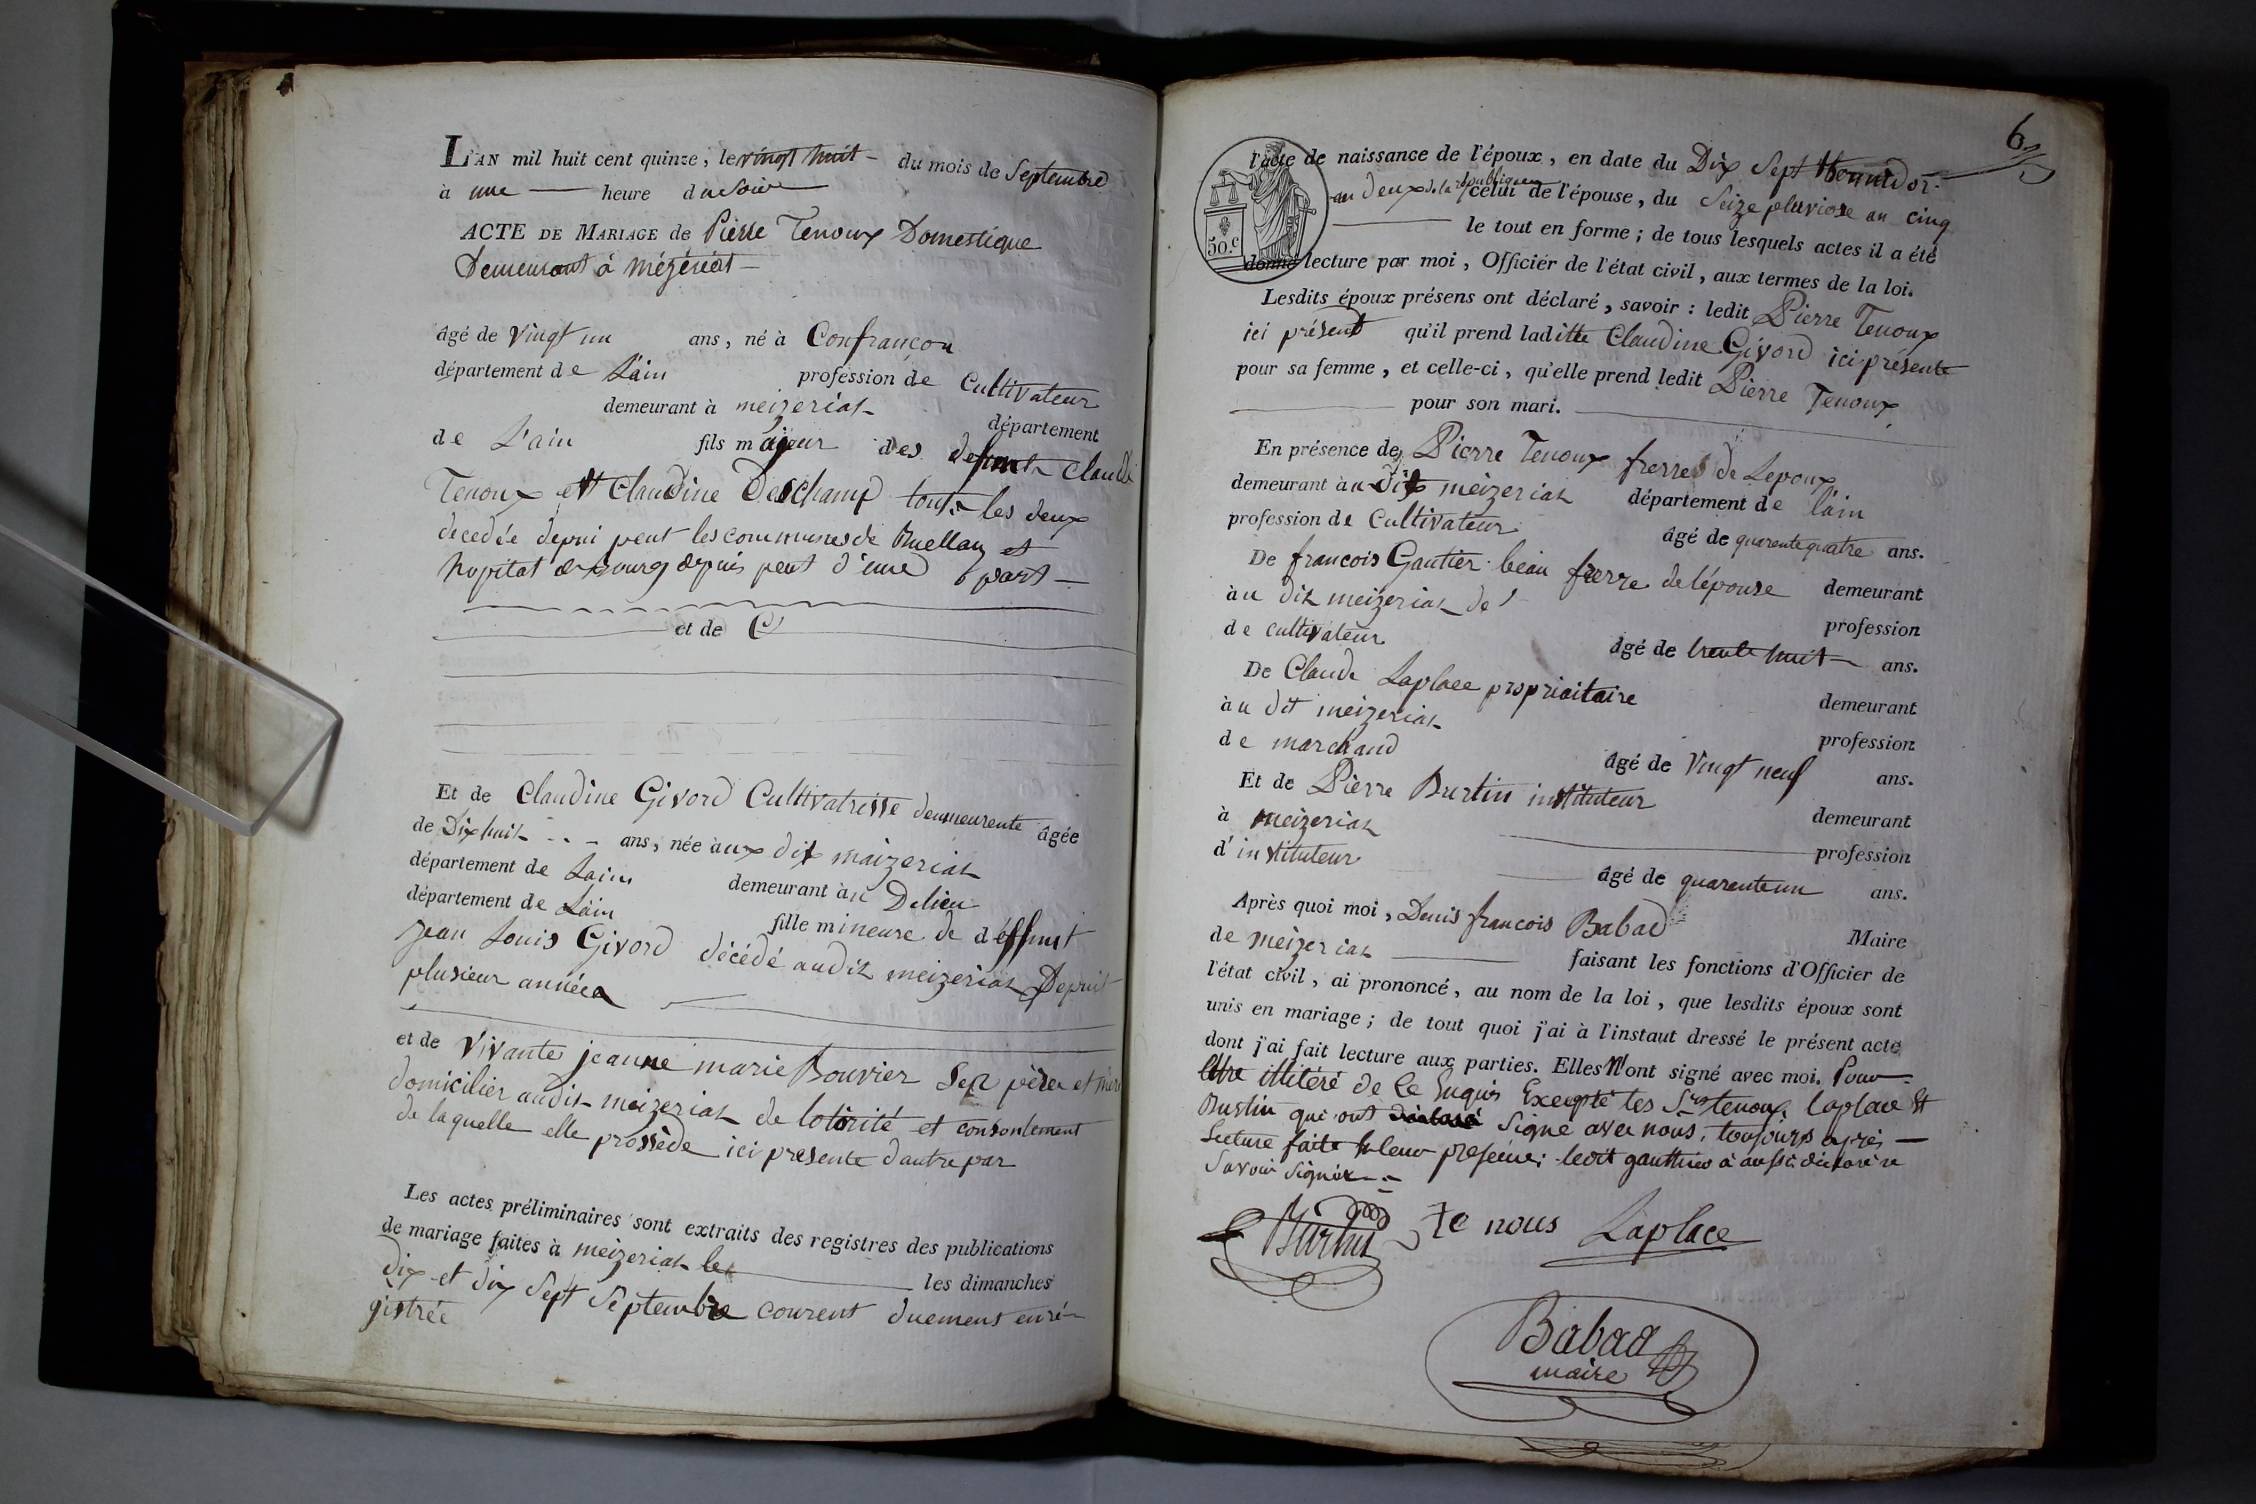 L'AN mil huit cent quinze, le vingt huit - du mois de Septembre
à une heure du Soir
ACTE DE MARIAGE de Pierre Tenoux Domestique
Demeurant à mézériat
âgé de vingt un ans, né à Confrançon
département de L'ain profession de Cultivateur
demeurant à meizeriat département
de L'ain fils majeur des defunt Claude
Tenoux et Claudine Deschamp touts les deux
decedée depui peut les communes de Buellas et
hopital de bourg depuis peut d'une part
et de
Et de Claudine Givord Cultivatrisse demeurente âgée
de Dix huit ans, née àux dit maizeriat
département de Lain demeurant àu De lieu
département de L'ain fille mineure de déffunt
jean Louis Givord décédé audit meizeriat Depuit
plusieur année
et de Vivante jeanne marie Bouvier Ses père et mère
domicilier audit meizeriat de lotorité et consontement
de laquelle elle prossède ici presente d'autre par
Les actes préliminaires sont extraits des registres des publications
de mariage faites à meizeriat le les dimanches
dix et dix Sept Septembre courent duement enré-
gistrée
6
l'acte de naissance de l'époux, en date du Dix Sept thermidor
an deux de la république celui de l'épouse, du Seize pluviose an cinq
50.c le tout en forme; de tous lesquels actes il a été
donné lecture par moi, Officier de l'état civil, aux termes de la loi.
Lesdits époux présens ont déclaré, savoir : ledit Pierre Tenoux
ici présent qu'il prend laditte Claudine Givord ici présente
pour sa femme, et celle-ci, qu'elle prend ledit Pierre Tenoux
pour son mari.
En présence de Pierre Tenoux frerre de Lepoux
demeurant àu dit meizeriat département de l'ain
profession de Cultivateur âgé de quarente quatre ans.
De francois Gautier beau frerre de l'épouse demeurant
àu dit meizeriat profession
de cultivateur âgé de trente huit ans.
De Claude Laplace propriaitaire demeurant
àu dit meizeriat profession
de marchand âgé de Vingt neuf ans.
Et de Pierre Burtin instituteur demeurant
à meizeriat profession
d'instituteur âgé de quarente un ans.
Après quoi moi, Denis francois Babad Maire
de meizeriat faisant les fonctions d'Officier de
l'état civil, ai prononcé, au nom de la loi, que lesdits époux sont
unis en mariage; de tout quoi j'ai à l'instaut dressé le présent acte
dont j'ai fait lecture aux parties. Elles n'ont signé avec moi. Pour
Ettre illitéré de Ce Enquis Excepté les Srs tenoux, laplace Et
Burtin qui ont Signé avec nous, toujours après
Lecture faite leur presence; ledit gauthier à aussi déclaré ne
Savoir Signer
Burtin Te nous Laplace
Babad
maire